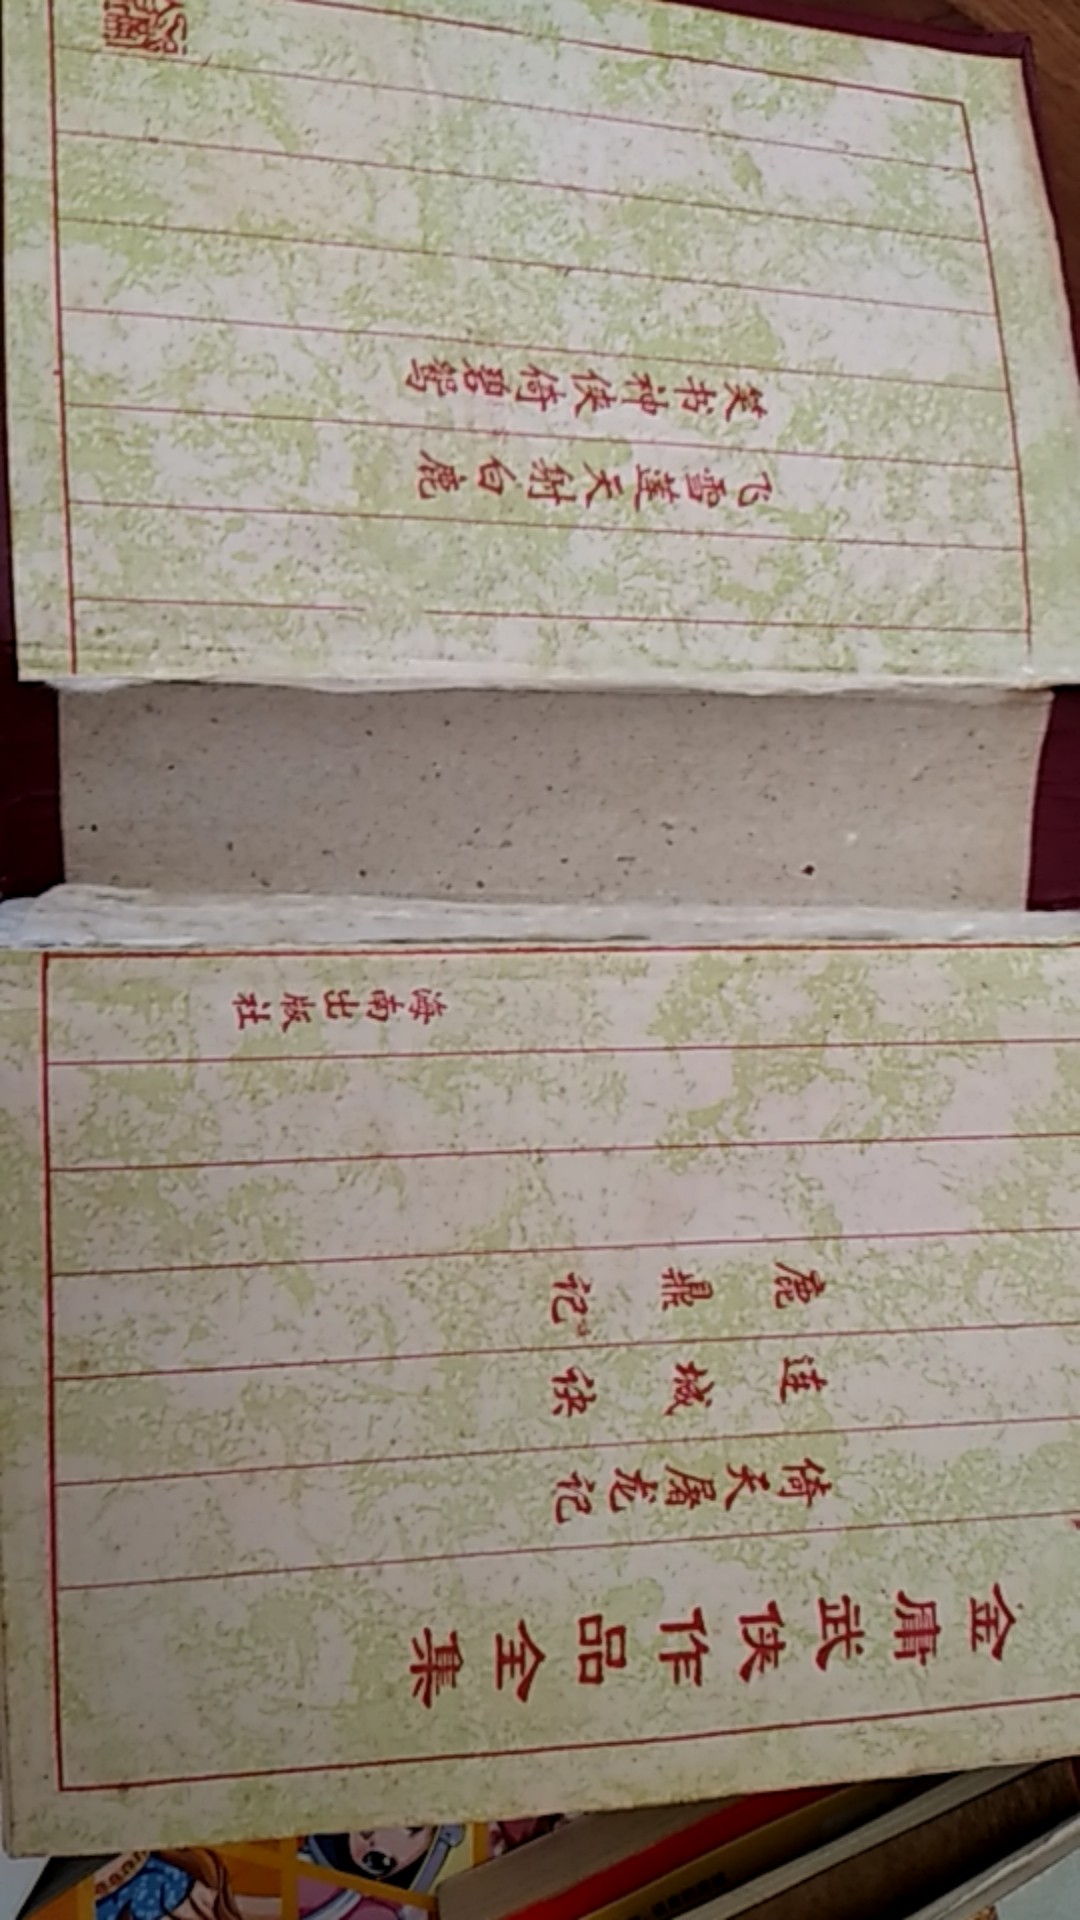 金庸武侠作品全集
倚天屠龙记
连城诀
鹿鼎记
海南出版社
飞雪連天射白鹿
笑书神侠倚碧鸳